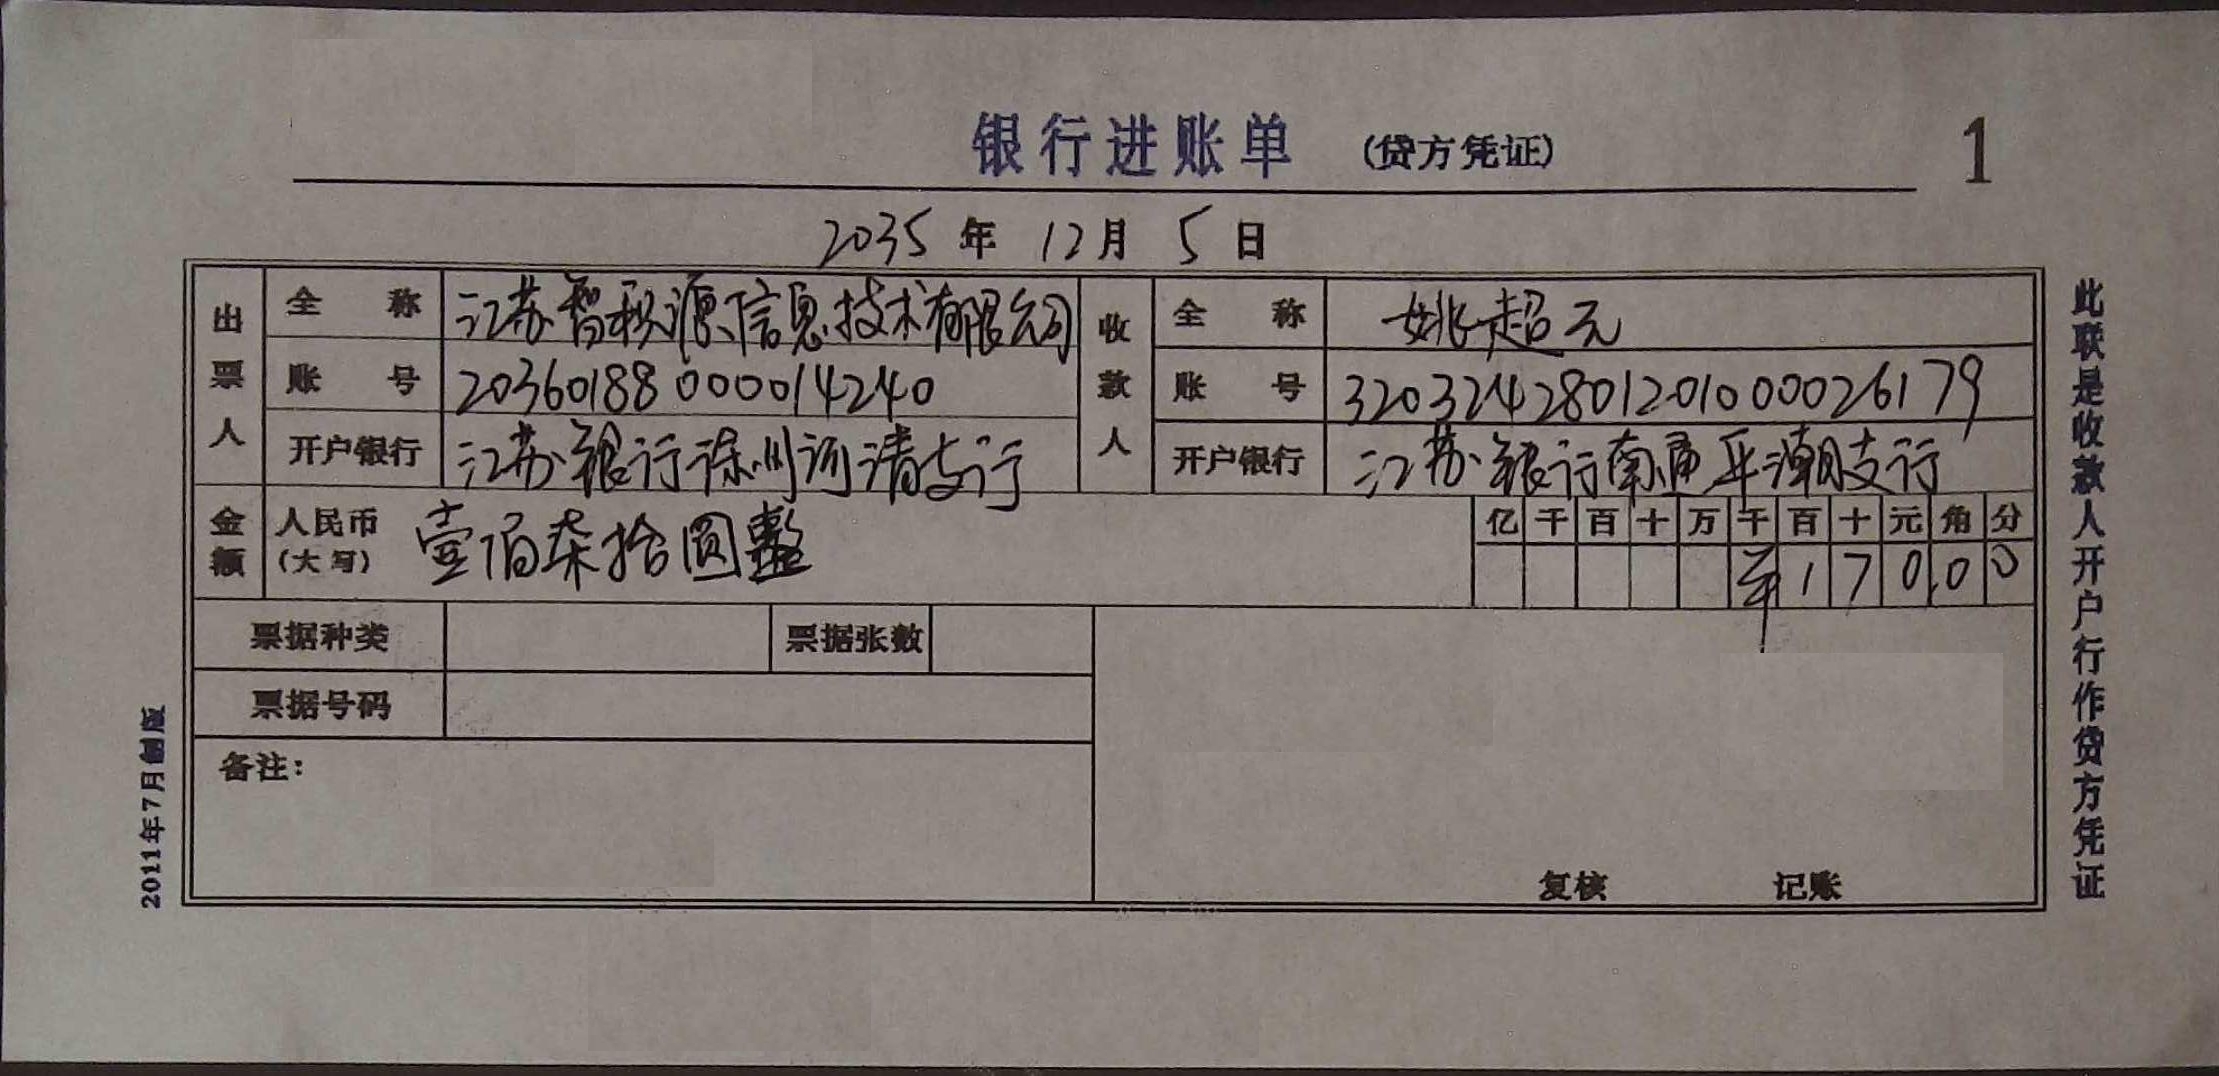 银行进账单 (贷方凭证) 1
2035 年 12 月 5 日
出票人 全称 江苏智积源信息技术有限公司 收款人 全称 姚超元
账号 20360188000014240 账号 32032428012010000026179
开户银行 江苏银行徐州河清支行 开户银行 江苏银行南通平潮支行
金额 人民币(大写) 壹佰柒拾圆整 亿 千 百 十 万 千 百 十 元 角 分
¥ 1 7 0 0 0
票据种类 票据张数
票据号码
备注:
复核 记账
此联是收款人开户行作贷方凭证
2011年7月制版